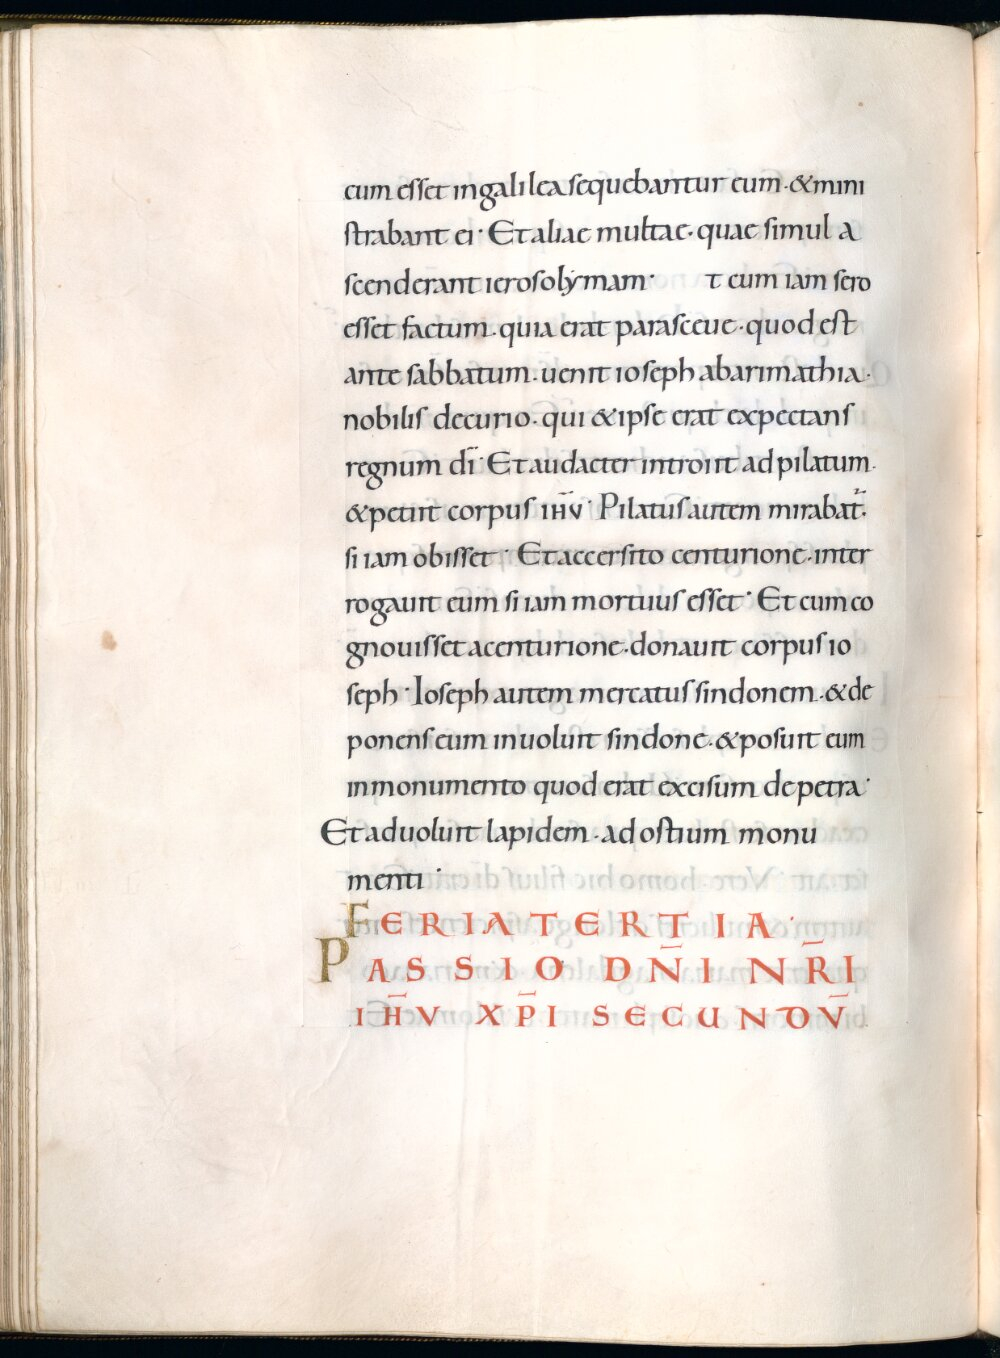 cum esset in galilea sequebantur eum · & mini
strabant ei · Et aliae multae · quae simul a
scenderant ierosolymam · t cum iam sero
esset factum · quia erat parasceue · quod est
ante sabbatum · uenit ioseph abarimathia ·
nobilis decurio · qui & ipse erat expectans
regnum dī · Et audacter introiit ad pilatum ·
& petiit corpus ihū · Pilatus autem mirabat̄ ·
si iam obisset · Et accersito centurione · inter
rogauit eum si iam mortuus esset · Et cum co
gnouisset acenturione · donauit corpus io
seph · Ioseph autem mercatus sindonem · & de
ponens eum inuoluit sindone · & posuit eum
in monumento quod erat excisum de petra ·
Et aduoluit lapidem · ad ostium monu
menti ·
FERIA TERTIA ·
PASSIO DN̄I NR̄I
IH̄V XP̄I SECUNDOV̄